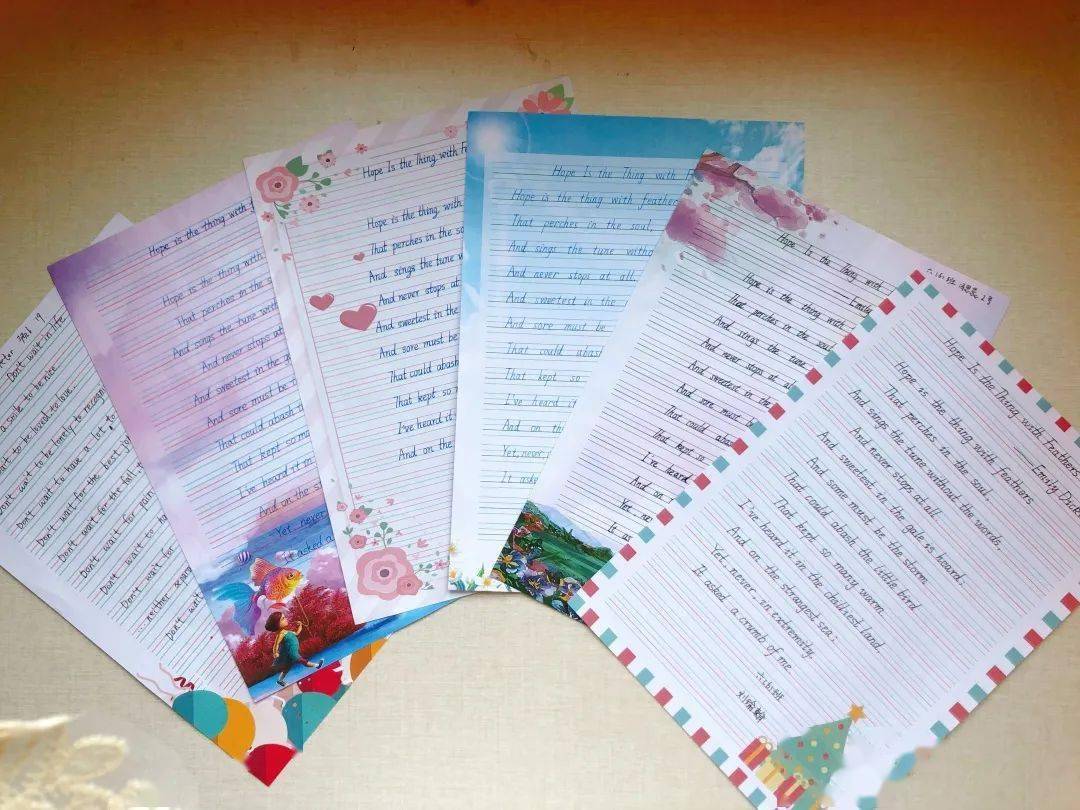 Don't wait in life
a smile to be nice
wait to be loved to love
Don't wait to be lonely to recogni
Don't wait to have a lot to
Don't wait for the best jo
Don't wait for the fall
Don't wait for pain
Don't wait to
Don't wait for
neither
Don't wait
Hope is the thing with
Hope is the thing with
That perches in the s
And sings the tune with
And never stops at
And sweetest in the ga
And sore must be
That could abash t
That kept so ma
I've heard it in
And on the st
Yet, never
it asked a
Hope Is the Thing with Fe
Hope is the thing with
That perches in the so
And sings the tune w
And never stops at
And sweetest in the
And sore must be
That could abash
That kept so
I've heard it
And on the
Hope Is the Thing with F
Hope is the thing with feather
That perches in the soul,
And sings the tune witho
And never stops at all,
And sweetest in the
And sore must be
That could abash
That kept so
I've heard it
And on th
Yet, never
It aske
Hope Is the Thing with
Emily
Hope is the thing with
That perches in the soul
And sings the tune
And never stops at all
And sweetest in the
And sore must be
That could abas
That kept so
I've heard
And on t
Yet ne
It as
Hope Is the Thing with Feathers
—— Emily Dick
Hope is the thing with feathers
That perches in the soul,
And sings the tune without the words,
And never stops at all.
And sweetest in the gale is heard;
And some must be the storm
That could abash the little bird
That kept so many warm
I've heard it in the chilliest land,
And on the strangest sea;
Yet, never, in extremity,
It asked a crumb of me